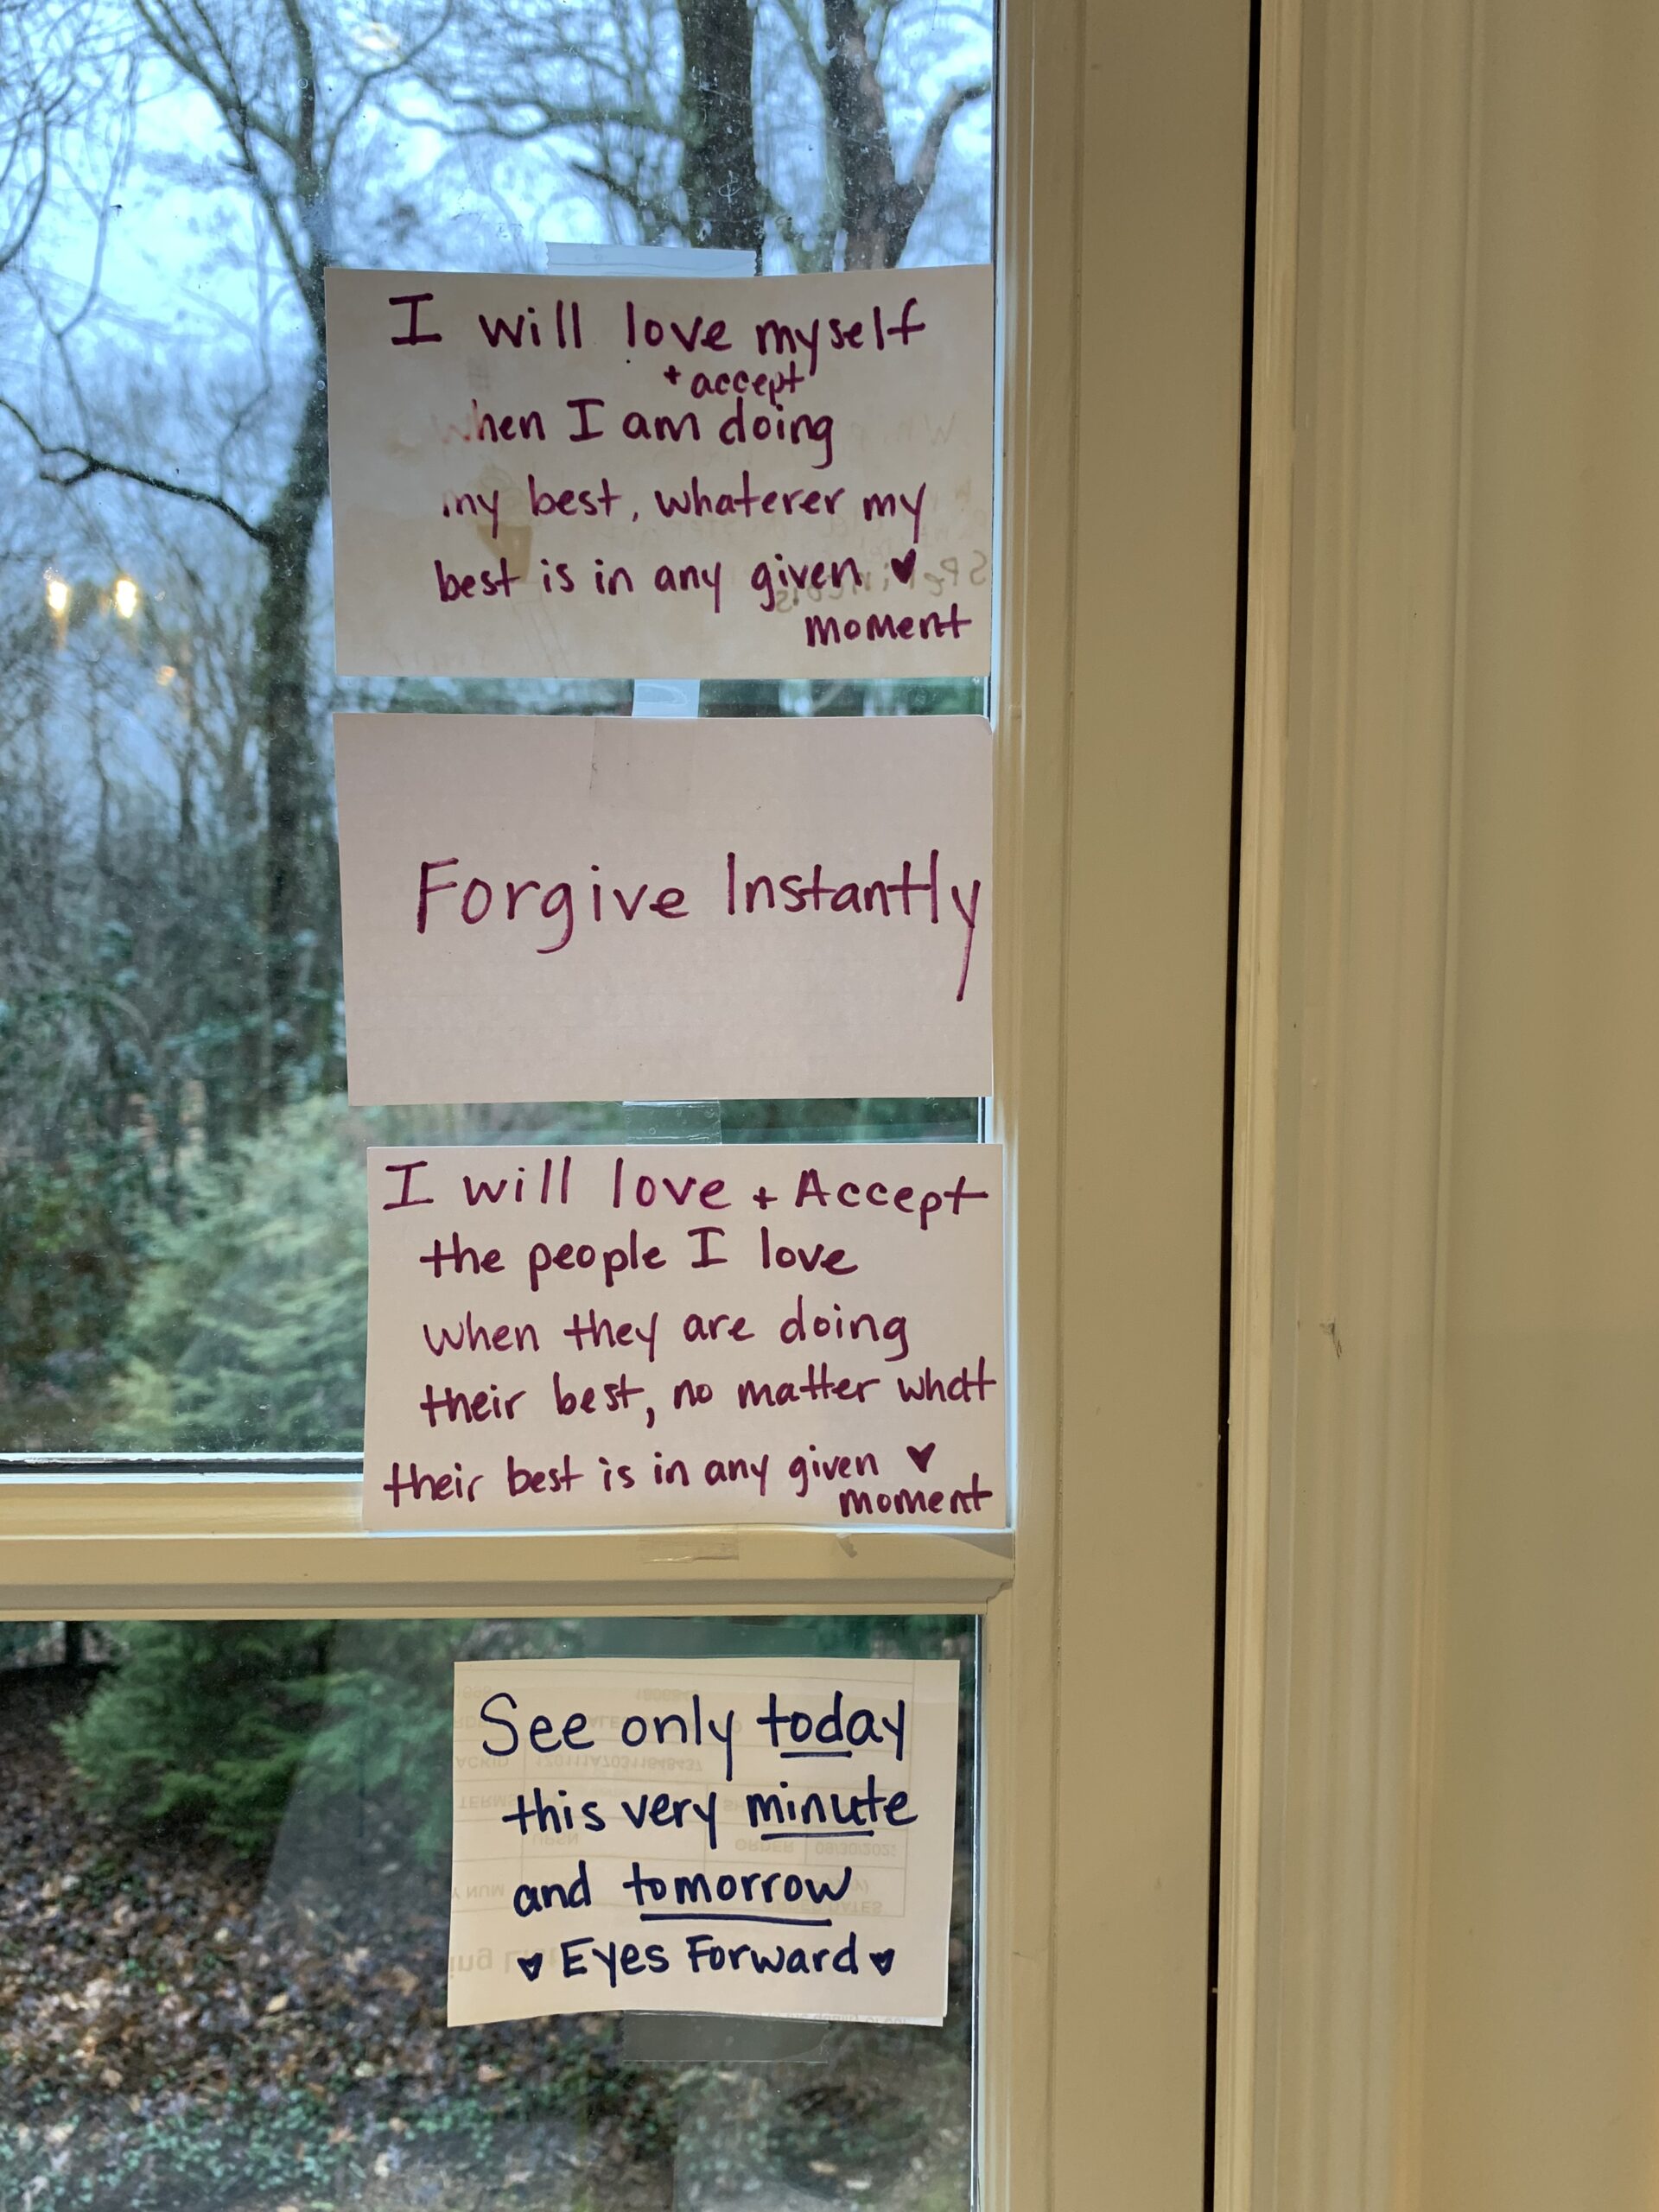 I will love myself
+ accept
when I am doing
my best, whatever my
best is in any given ♥
moment
Forgive Instantly
I will love + Accept
the people I love
when they are doing
their best, no matter what
their best is in any given ♥
moment
See only today
this very minute
and tomorrow
♥ Eyes Forward ♥